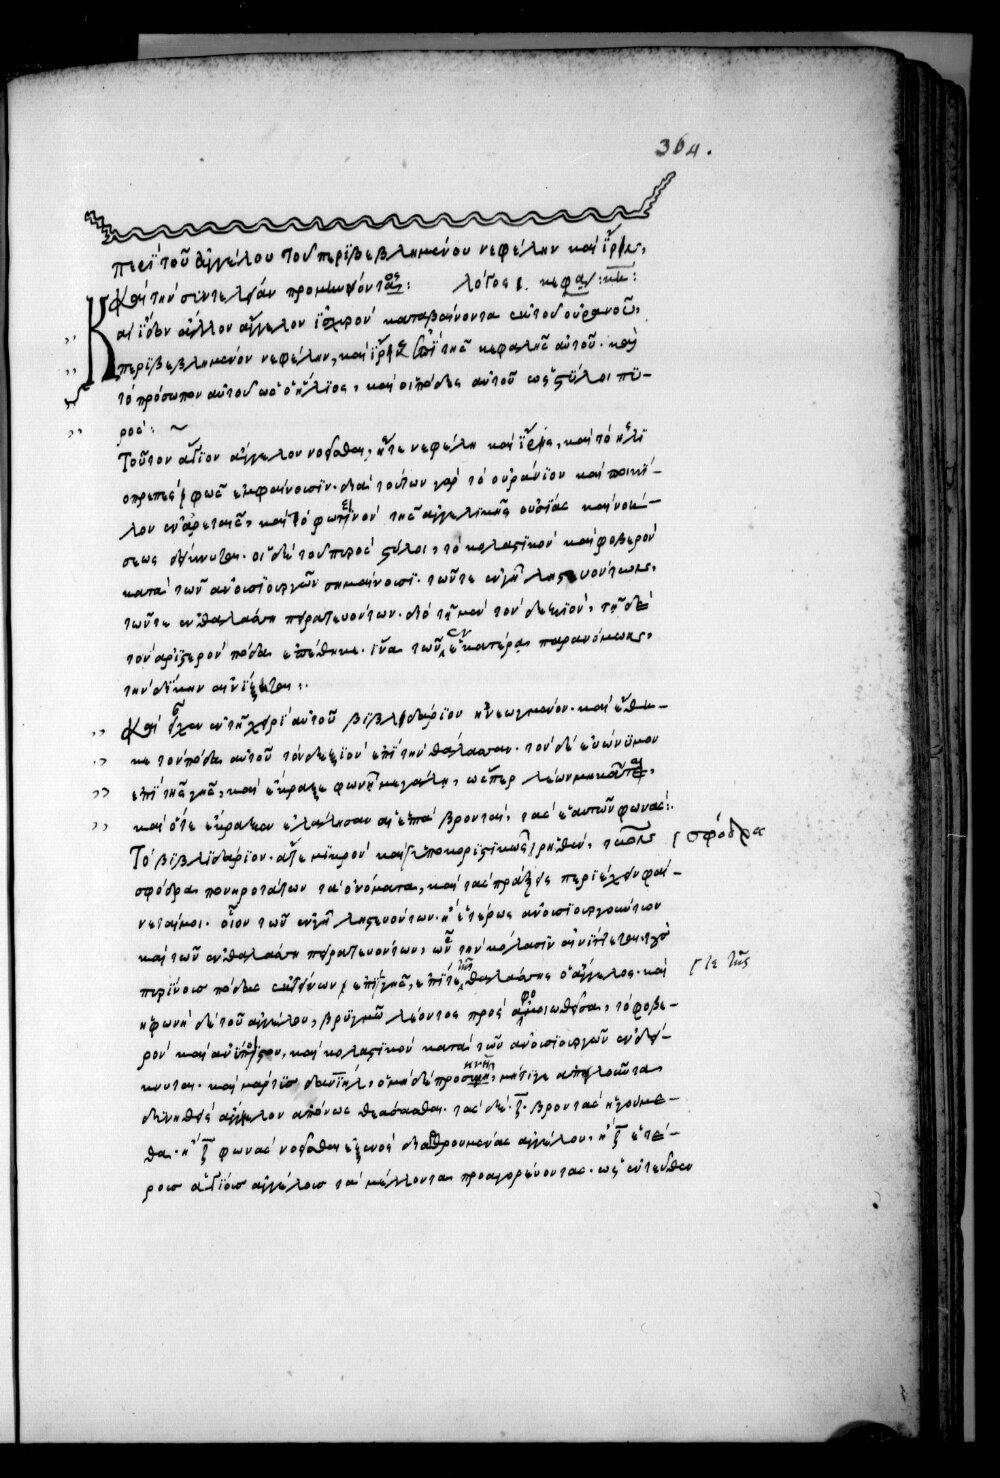 364.
Περὶ τοῦ ἀγγέλου τοῦ περιβεβλημένου νεφέλην καὶ ἶριν,
καὶ τὴν συντέλειαν προμηνύοντος: λόγος ι. κεφάλ: κη:
Καὶ ἶδον ἄλλον ἄγγελον ἰσχυρὸν καταβαίνοντα ἐκ τοῦ οὐρανοῦ,
περιβεβλημένον νεφέλην, καὶ ἶρις ἐπὶ τῆς κεφαλῆς αὐτοῦ. καὶ
τὸ πρόσωπον αὐτοῦ ὡς ὁ ἥλιος, καὶ οἱ πόδες αὐτοῦ ὡς στύλοι πυ-
ρός: ~
Τοῦτον ἅγιον ἄγγελον νοεῖσθαι, ἥτε νεφέλη καὶ ἶρις, καὶ τὸ ἡλι
οπρεπὲς φῶς ἐμφαίνουσιν. διὰ τούτων γὰρ τὸ οὐράνιον καὶ ποικί-
λον ἐν ἀρεταῖς, καὶ τὸ φωτεινὸν τῆς ἀγγελικῆς οὐσίας καὶ νοή-
σεως δείκνυται. οἱ δὲ τοῦ πυρὸς στύλοι, τὸ κολαστικὸν καὶ φοβερὸν
κατὰ τῶν ἀνοσιουργῶν σημαίνουσι. τῶντε ἐν γῇ ληστευόντων,
τῶντε ἐν θαλάσσῃ πειρατευόντων. διὸ τῇ μὲν τὸν δεξιὸν, τῇ δὲ
τὸν ἀριστερὸν πόδα ἐπέθηκε. ἵνα τῶν ἐν ἑκατέρᾳ παρανόμων,
τὴν δίκην αἰνίξηται:.
Καὶ εἶχεν ἐν τῇ χειρὶ αὐτοῦ βιβλιδάριον ἠνεωγμένον. καὶ ἔθη-
κε τὸν πόδα αὐτοῦ τὸν δεξιὸν ἐπὶ τὴν θάλασσαν. τὸν δὲ εὐώνυμον
ἐπὶ τῆς γῆς, καὶ ἔκραξε φωνῇ μεγάλῃ, ὥσπερ λέων μηκᾶται,
καὶ ὅτε ἔκραξεν ἐλάλησαν αἱ ἑπτὰ βρονταὶ, τὰς ἑαυτῶν φωνάς:.
Τὸ βιβλιδάριον. ἅτε μικρὸν καὶ ὑποκοριστικῶς ῥηθὲν, τῶν σφόδρα
σφόδρα πονηροτάτων τὰ ὀνόματα, καὶ τὰς πράξεις περιέχειν φαί-
νεταί μοι. οἷον τῶν ἐν γῇ ληστευόντων. ἢ ἑτέρως ἀνοσιουργούντων
καὶ τῶν ἐν θαλάσσῃ πειρατευόντων, ὧν τὴν κόλασιν αἰνίττεται τοὺς
πυρίνους πόδας ἐκτείνων ἐπὶ γῆς, ἐπί τε τῆς θαλάσσης ὁ ἄγγελος. καὶ τε τῆς
ἡ φωνὴ δὲ τοῦ ἀγγέλου, βρυγμῷ λέοντος προσαφομοιωθεῖσα, τὸ φοβε-
ρὸν καὶ ἀνύποιστον, καὶ κολαστικὸν κατὰ τῶν ἀνοσιουργῶν ἐνδεί-
κνυται. καὶ μάρτυς δανιὴλ, ὁ μηδὲ προσκυνη, μήτιγε ἀπειλοῦντα
δυνηθεὶς ἄγγελον ἀπόνως θεάσασθαι. τὰς δὲ ζ̅ βροντὰς ἡγούμε-
θα. ἢ ζ̅ φωνὰς νοεῖσθαι ἐξ ἑνὸς διαθρουμένας ἀγγέλου. ἢ ζ̅ ἑτέ-
ρους ἁγίους ἀγγέλους τὰ μέλλοντα προαγορεύοντας. ὡς ἐντεῦθεν